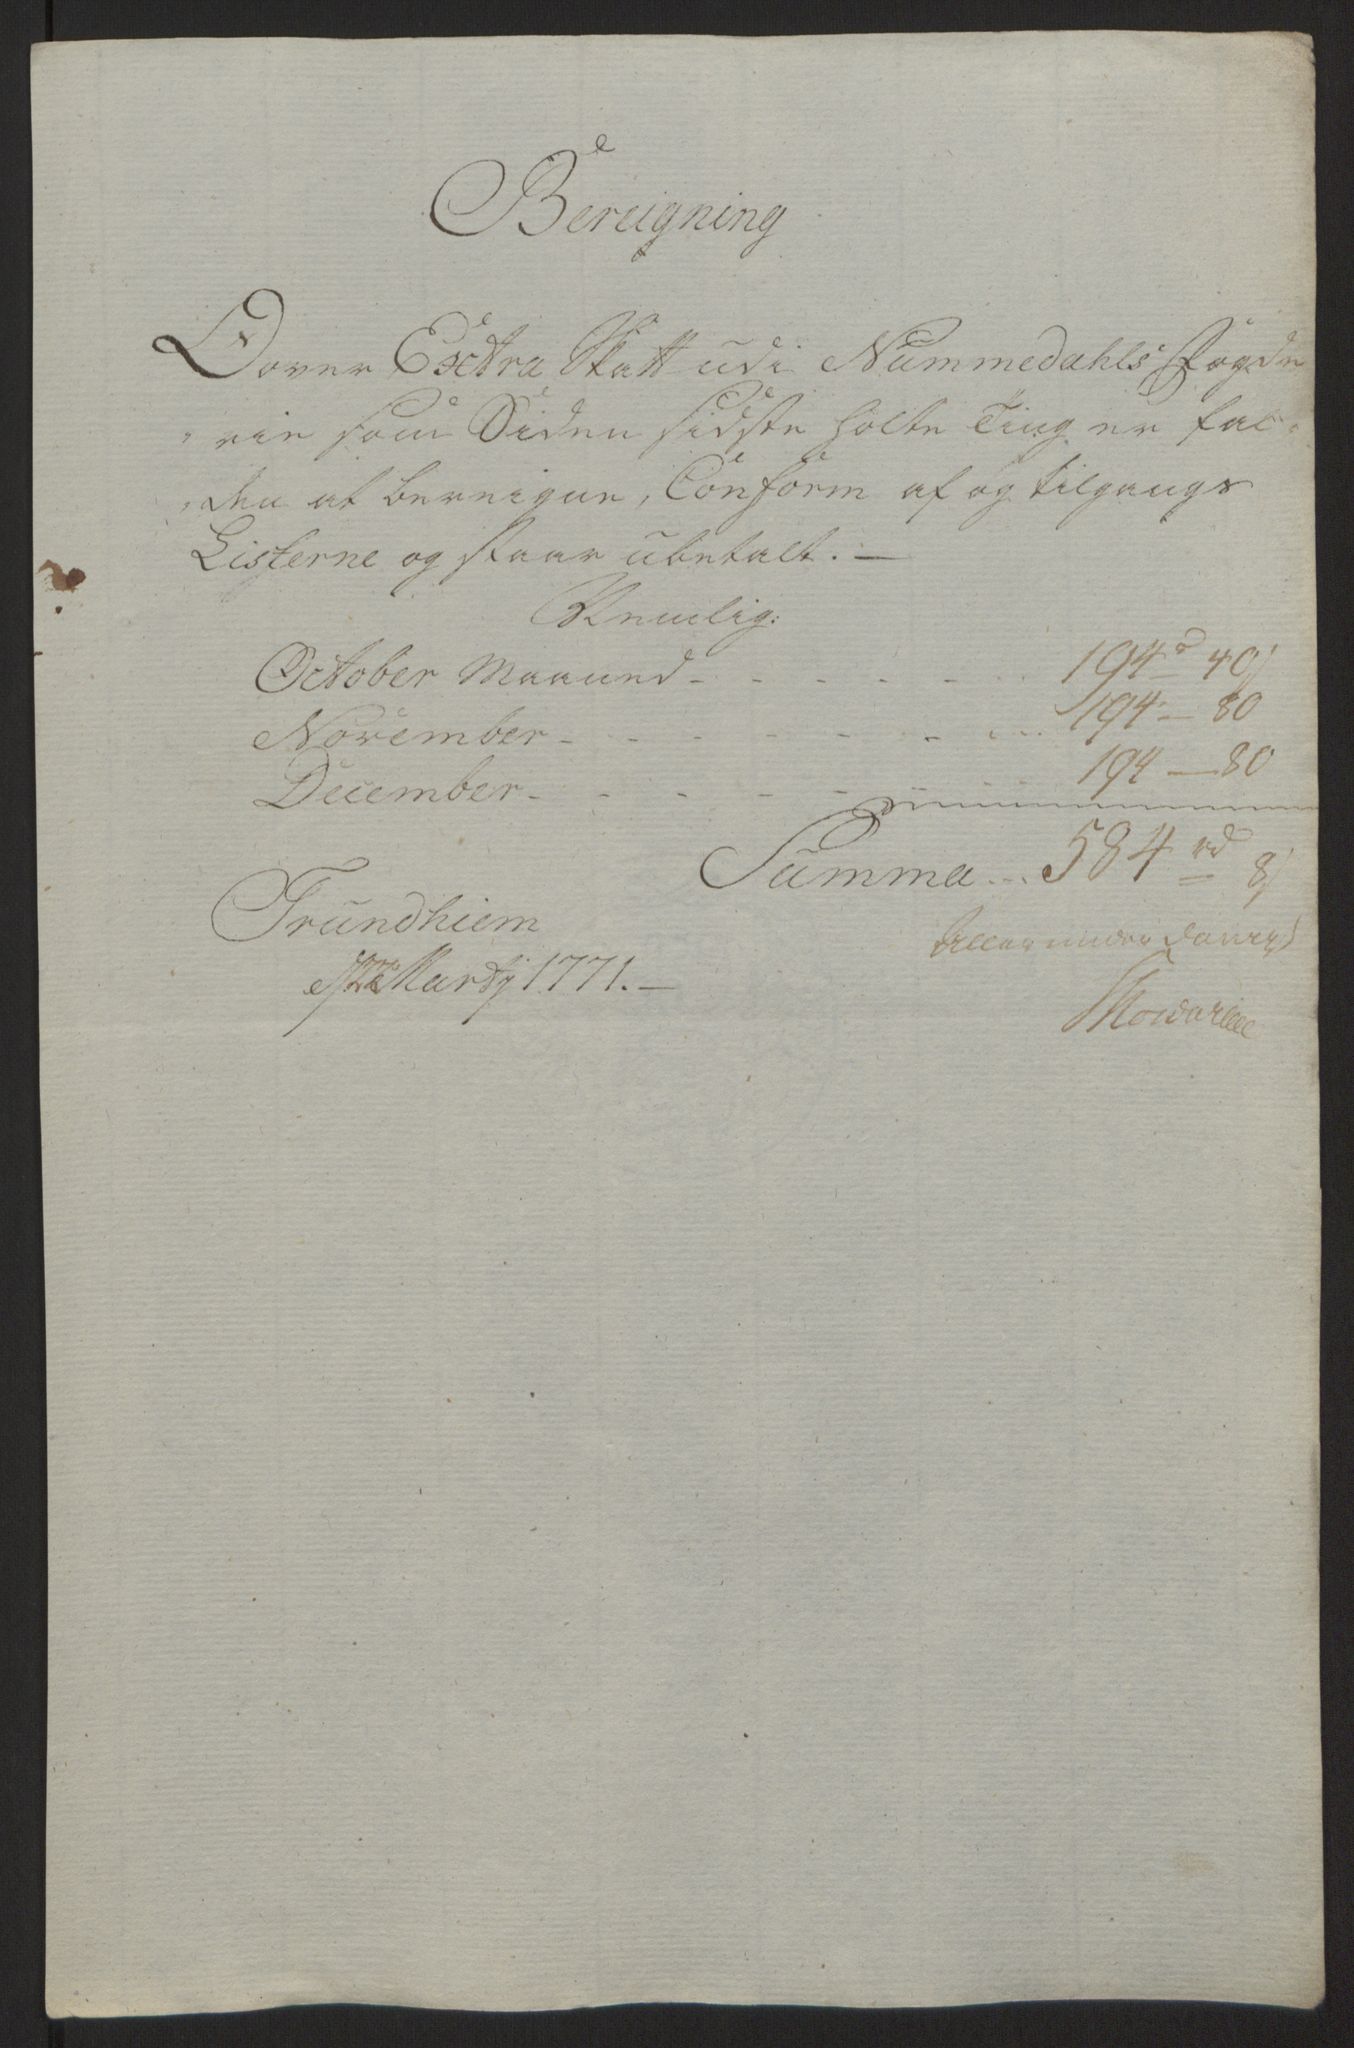 Bereigning
Over Exctra Skatt udi Nummedahls Fogde
rie som Siden sidste holte Ting er fal-
den at bereigne, Conform af og tilgangs
Listerne og staar ubetalt. —
Nemlig:
October Maaned - - - - - 194 d 40 s
November - - - - - - - 194 — 80
December - - - - - - - 194 — 80
Summa ... 584 rd 8 s
Trundhiem
Martij 1771. —